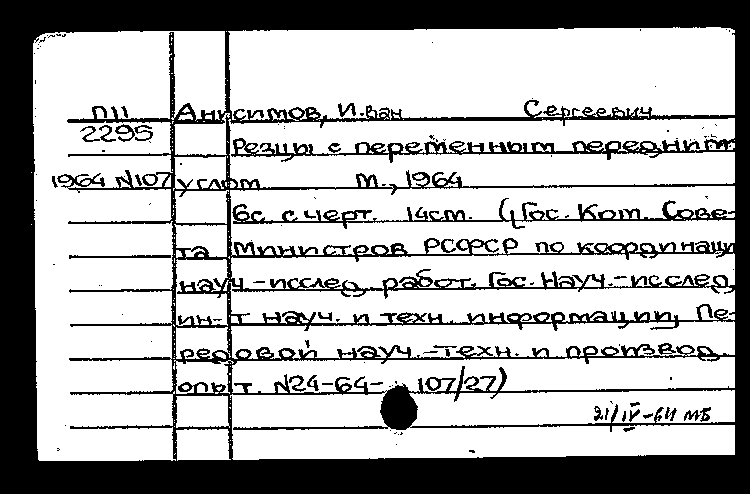 П11 Анисимов, Иван Сергеевич
2295
Резцы с переменным передним
1964 N107 углом М., 1964
6с. с черт. 14см. (Гос. Ком. Сове-
та Министров РСФСР по координаци
науч.-исслед. работ. Гос. Науч.-исслед.
ин-т науч. и техн. информации, Пе-
редовой науч.-техн. и производ.
опыт. N24-64- 107/27)
21/IV-64 МБ